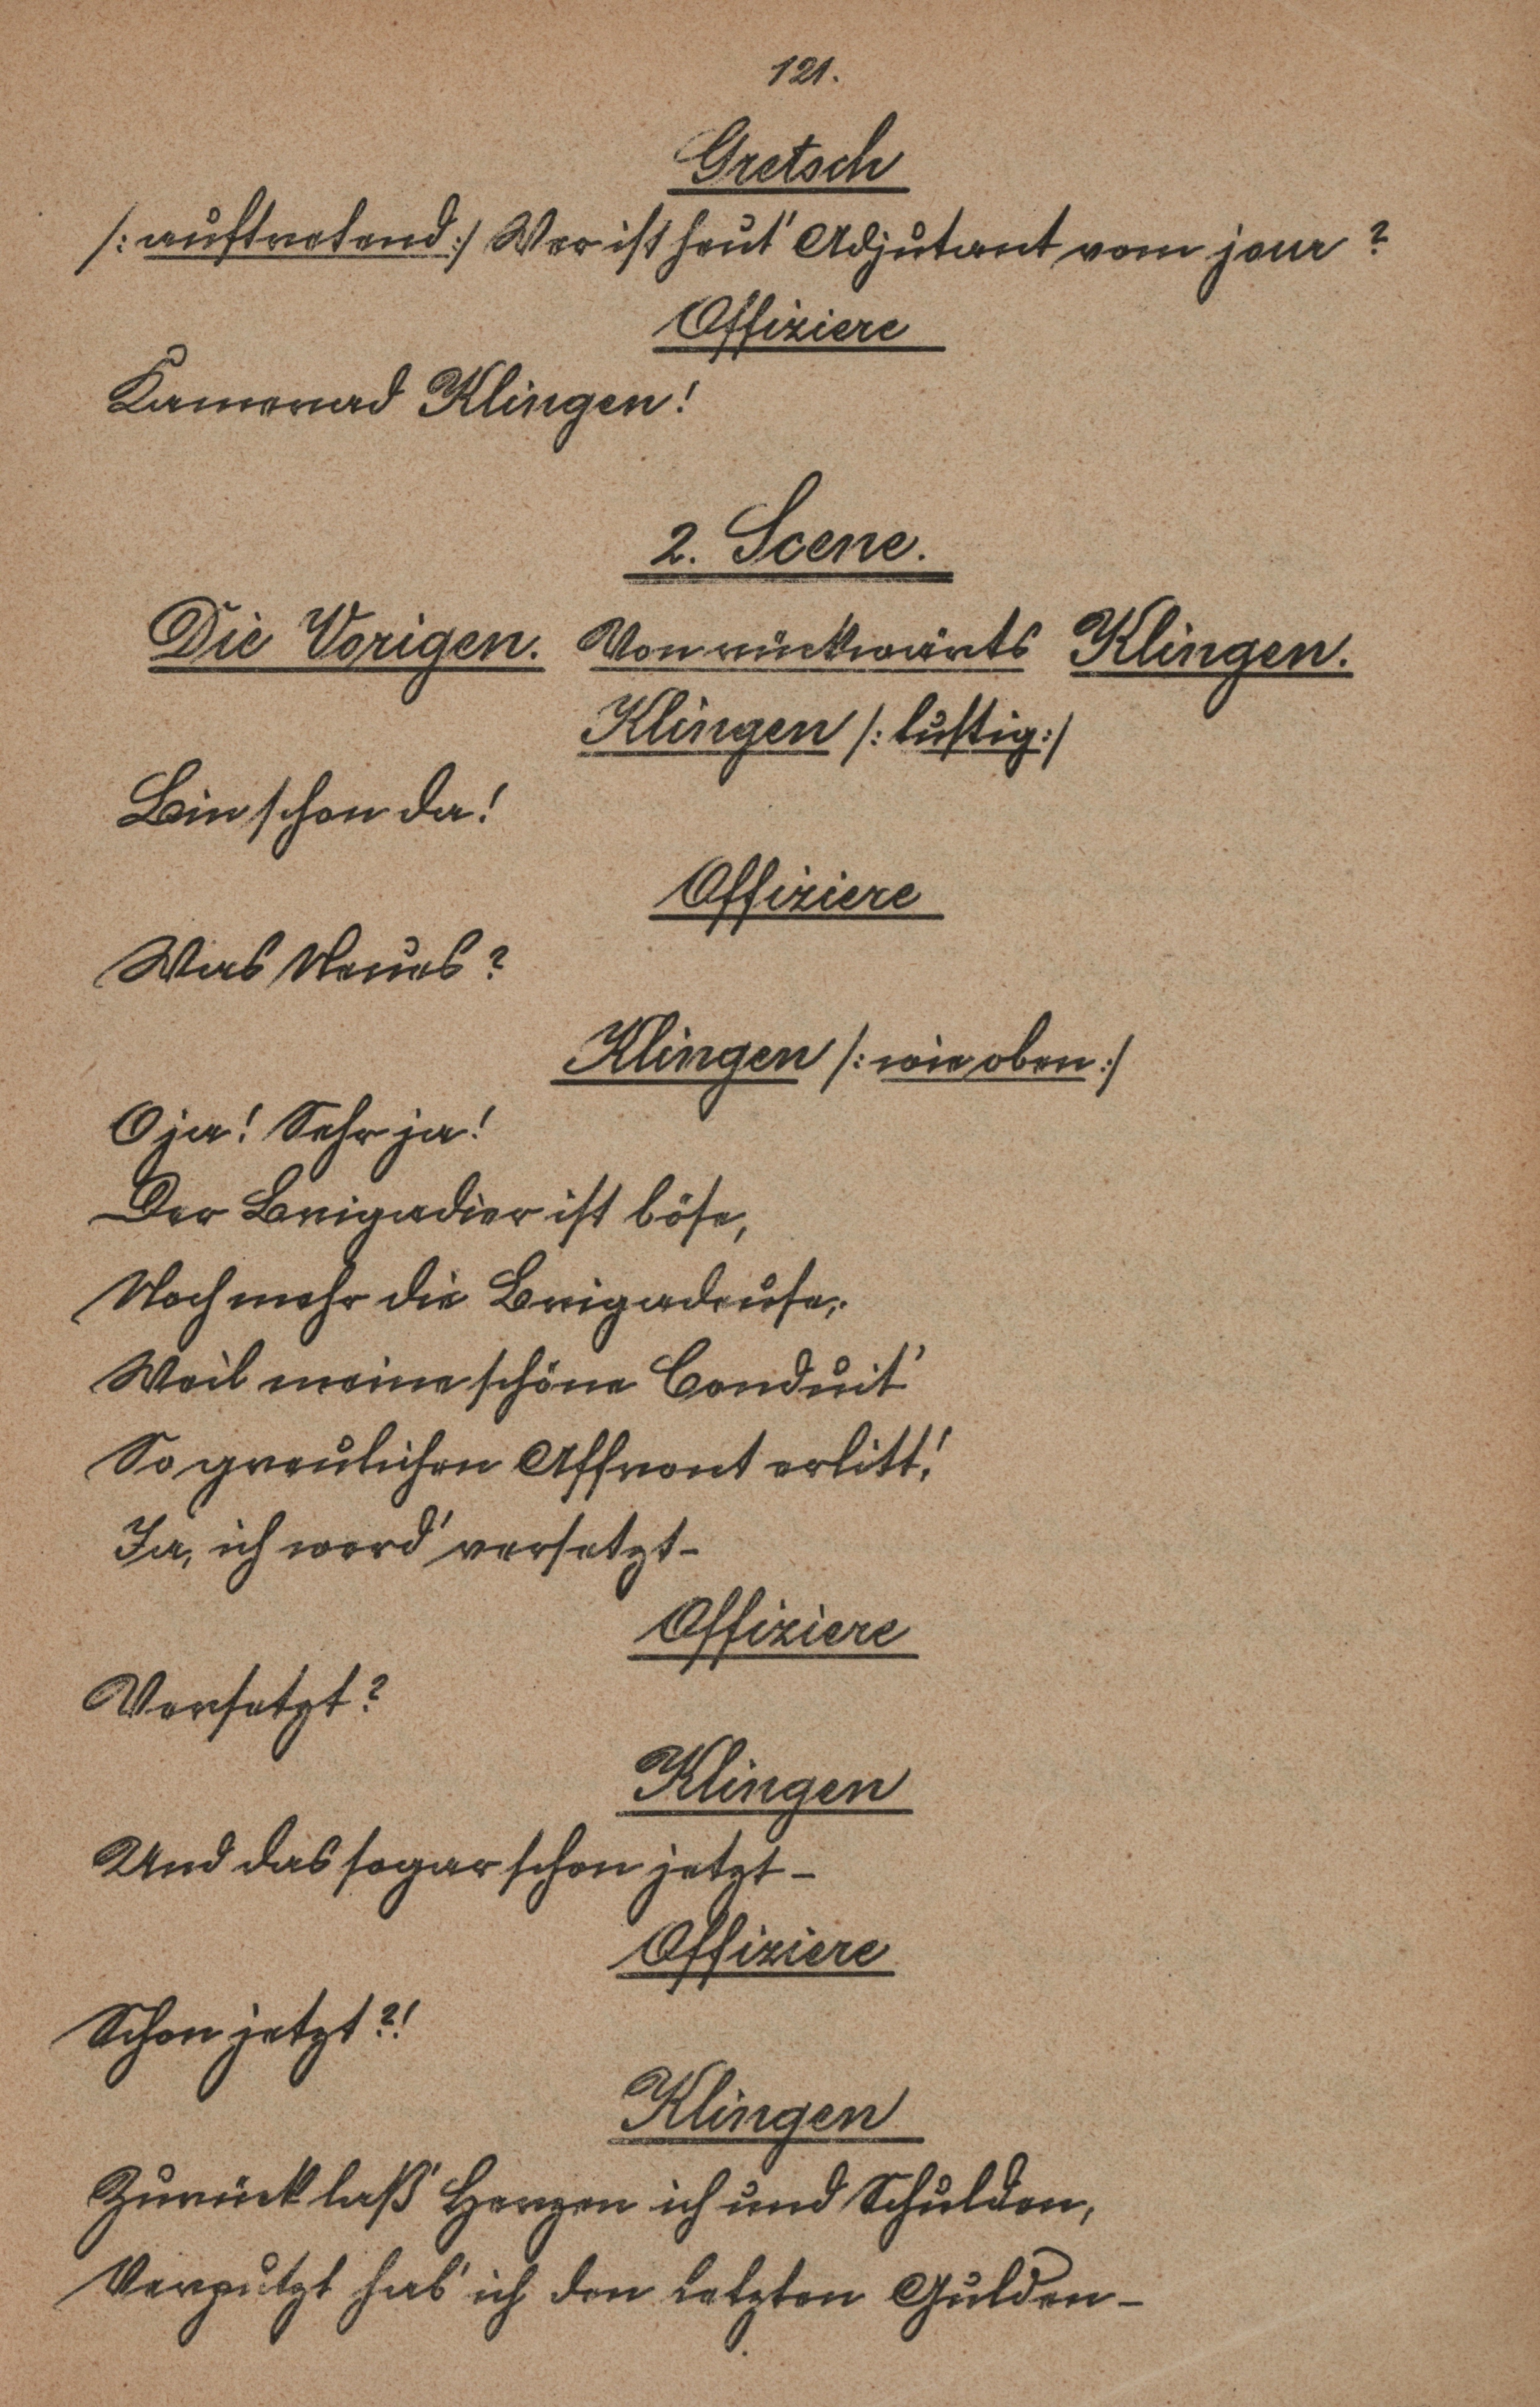 121.
Gretsch
/: auftretend :/ Wer ist heut' Adjutant vom jour?
Offiziere
Kamerad Klingen!
2. Scene.
Die Vorigen. Von rückwärts Klingen.
Klingen /: lustig :/
Bin schon da!
Offiziere
Was Neues?
Klingen /: wie oben :/
O ja! Sehr ja!
Der Brigadier ist böse,
Noch mehr die Brigadeuse,
Weil meine schöne Conduit'
So greulichen Affront erlitt!
Ja, ich werd' versetzt-
Offiziere
Versetzt?
Klingen
Und das sogar schon jetzt-
Offiziere
Schon jetzt?!
Klingen
Zurück laß' Herzen ich und Schulden,
Verputzt hab' ich den letzten Gulden-